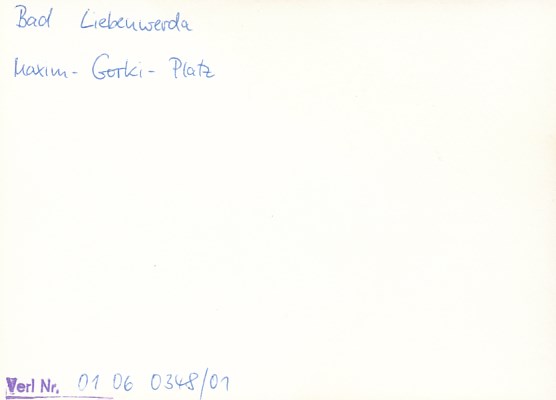 Bad Liebenwerda
Maxim-Gorki-Platz
Verl Nr. 01 06 0348/01